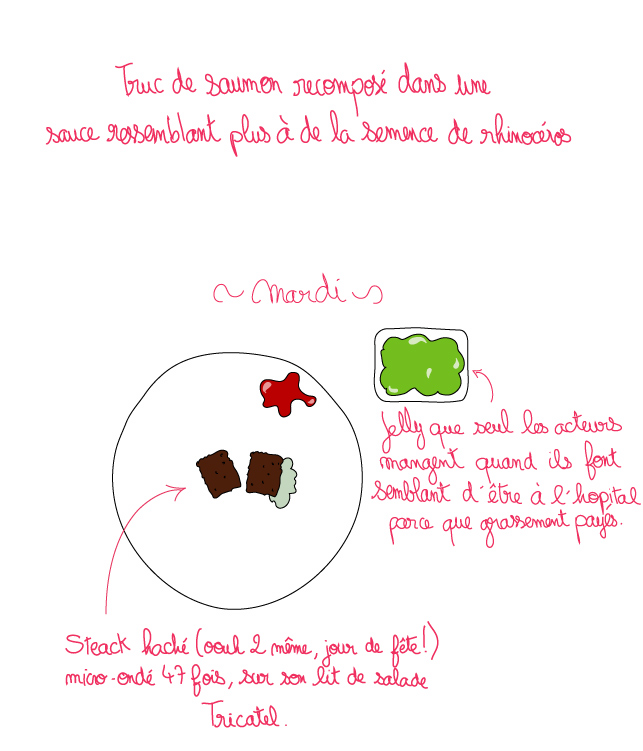 Truc de saumon recomposé dans une
sauce ressemblant plus à de la semence de rhinocéros
~ Mardi ~
Jelly que seul les acteurs
mangent quand ils font
semblant d'être à l'hopital
parce que grassement payés.
Steack haché (oouh 2 même, jour de fête!)
micro-ondé 47 fois, sur son lit de salade
Tricatel.